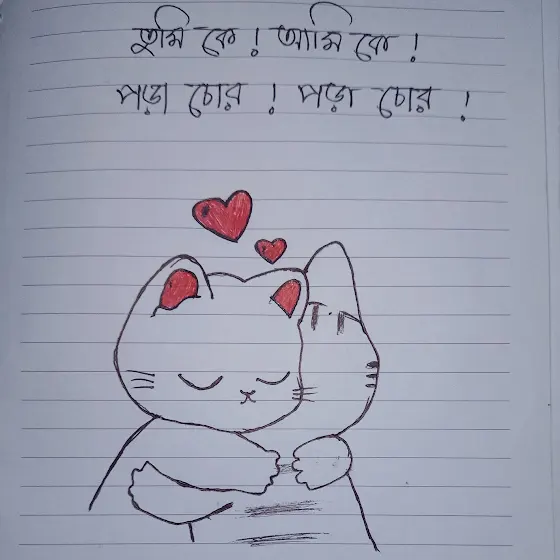 তুমি কে ! আমি কে !
পড়া চোর ! পড়া চোর !